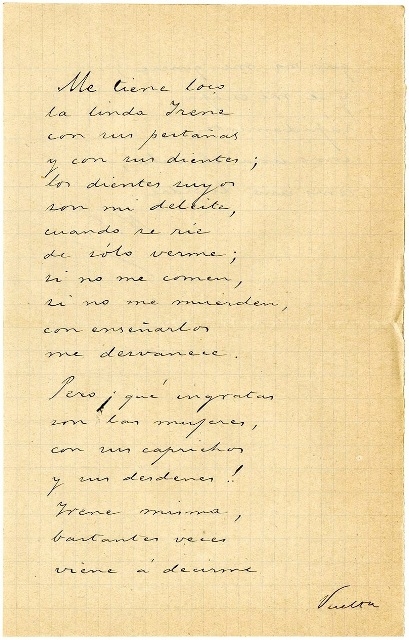 Me tiene loco
la linda Irene
con sus pestañas
y con sus dientes;
los dientes suyos
son mi deleite,
cuando se ríe
de sólo verme;
si no me comen,
si no me muerden,
con enseñarlos
me desvanece.
Pero ¡qué ingratas
son las mujeres,
con sus caprichos
y sus desdenes!
Irene misma,
bastantes veces
viene á decirme
Vuelta